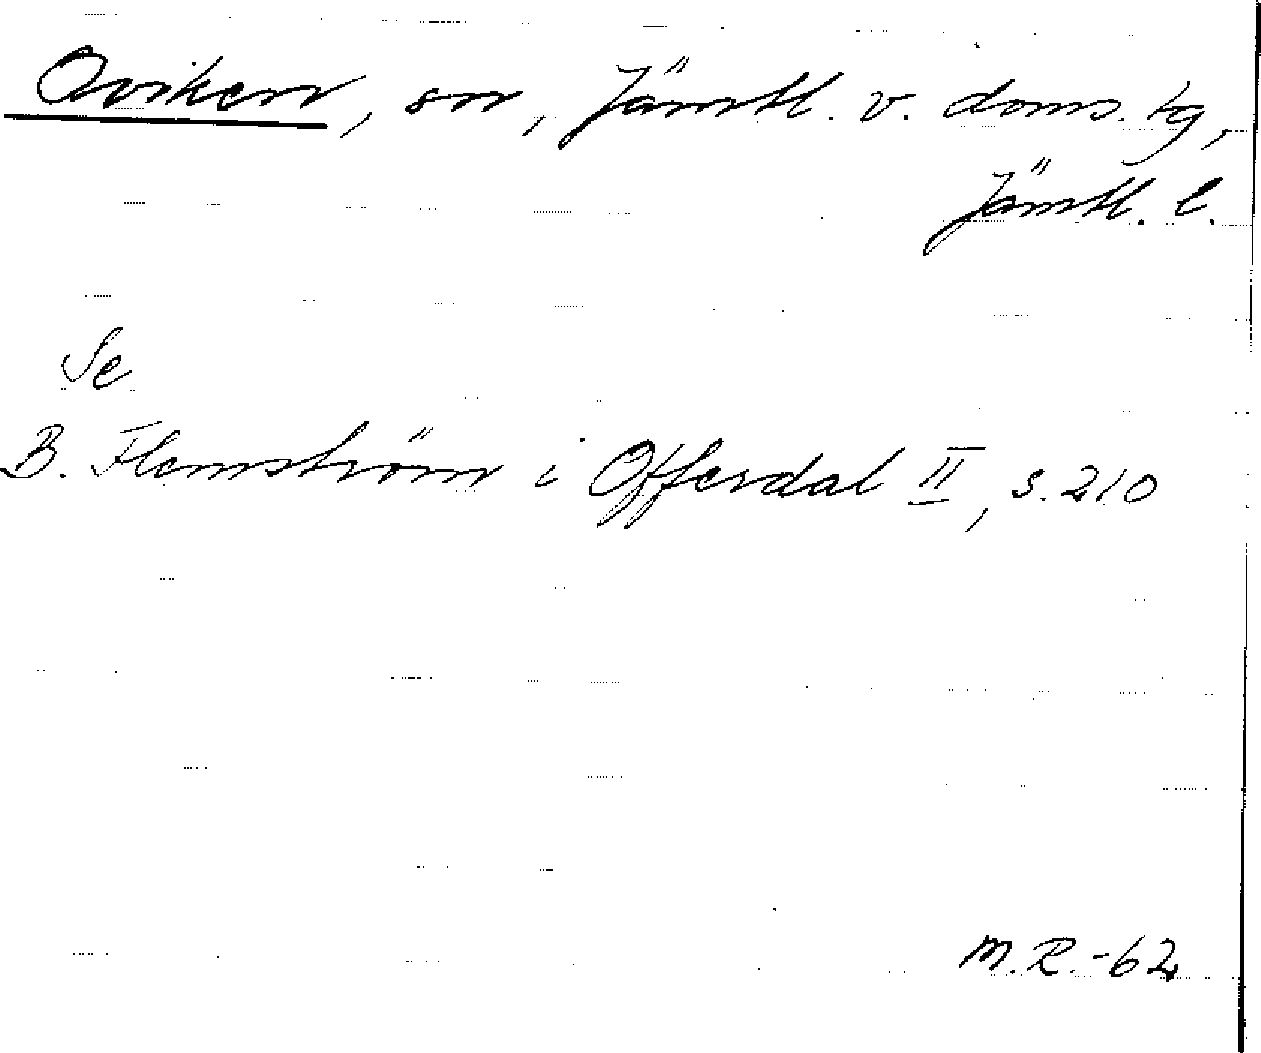 Oviken, sn, Jämtl. v. doms. tg,
Jämtl. l.
Se
B. Flemström i Offerdal II, s. 210
M.R.-62